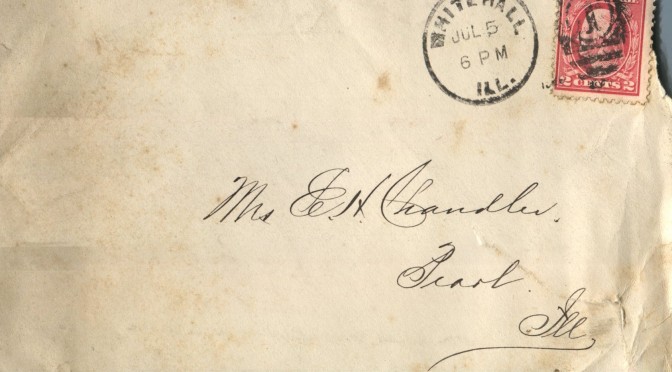 WHITEHALL
JUL 5
6 PM
ILL.
2 CENTS 2
Mrs E. H. Chandler.
Pearl.
Ill.